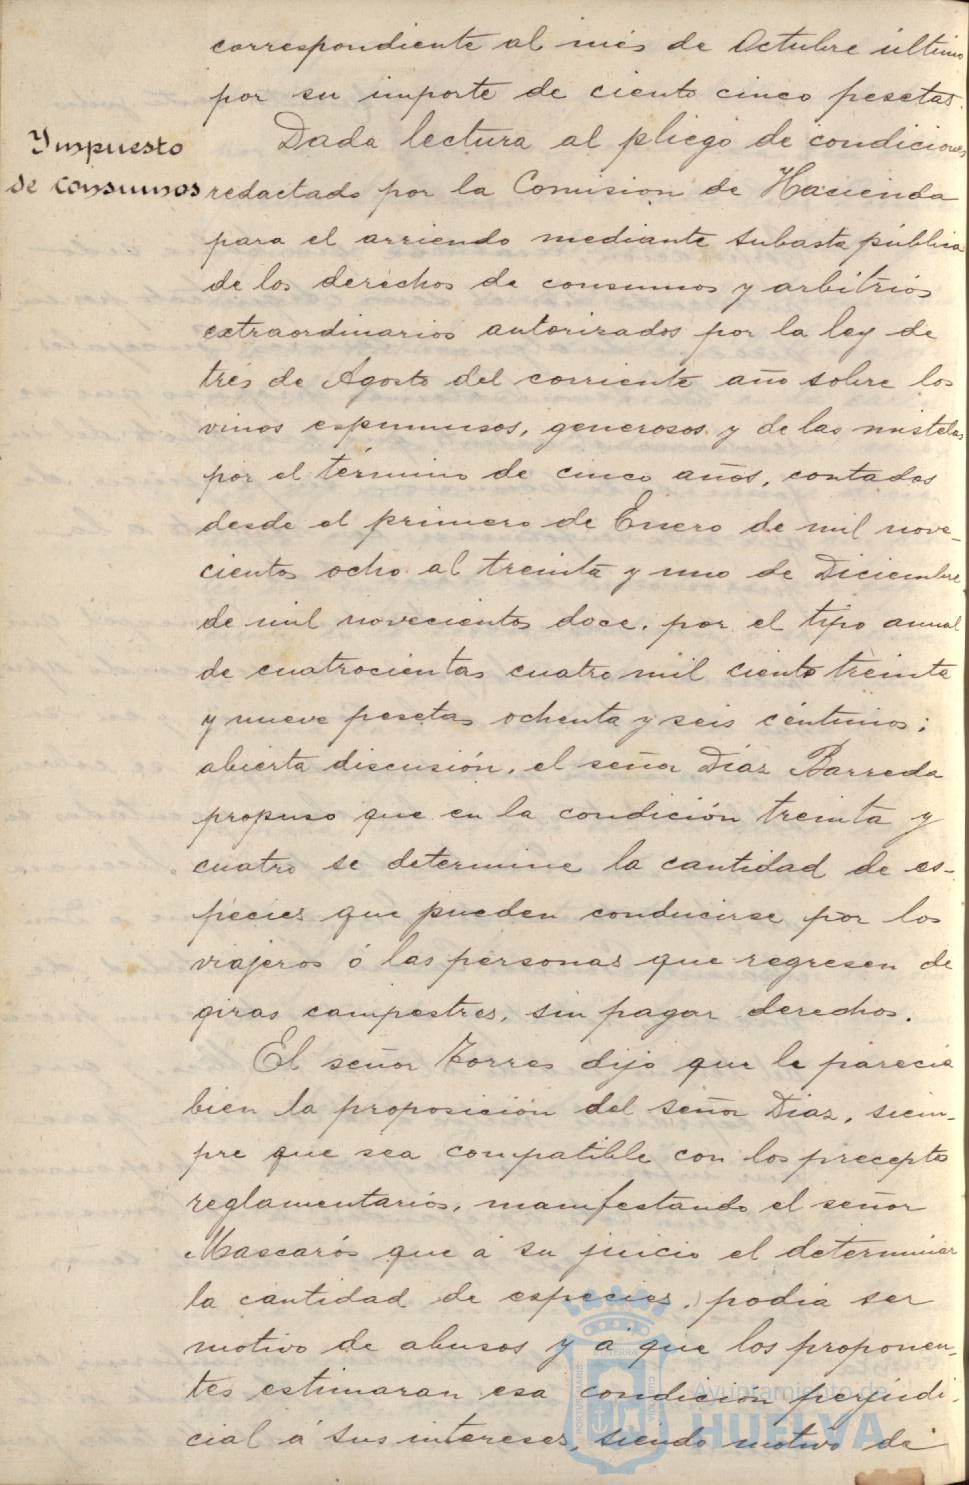 correspondiente al més de Octubre último
por su importe de ciento cinco pesetas.
Impuesto
de consumos
Dada lectura al pliego de condiciones
redactado por la Comision de Hacienda
para el arriendo mediante subasta pública
de los derechos de consumos y arbitrios
extraordinarios autorizados por la ley de
tres de Agosto del corriente año sobre los
vinos espumusos, generosos y de las mistelas
por el término de cinco años, contados
desde el primero de Enero de mil nove-
cientos ocho al treinta y uno de Diciembre
de mil novecientos doce, por el tipo anual
de cuatrocientas cuatro mil ciento treinta
y nueve pesetas ochenta y seis céntimos;
abierta discusión, el señor Díaz Barreda
propuso que en la condición treinta y
cuatro se determine la cantidad de es-
pecies que pueden conducirse por los
viajeros ó las personas que regresen de
giras campestres, sin pagar derechos.
El señor Torres dijo que le parecia
bien la proposición del señor Diaz, siem-
pre que sea compatible con los preceptos
reglamentarios, manifestando el señor
Mascarós que á su juicio el determinar
la cantidad de especies, podia ser
motivo de abusos y á que los proponen-
tes estimaran esa condición perjudi-
cial á sus intereses, siendo motivo de
Ayuntamiento de
HUELVA